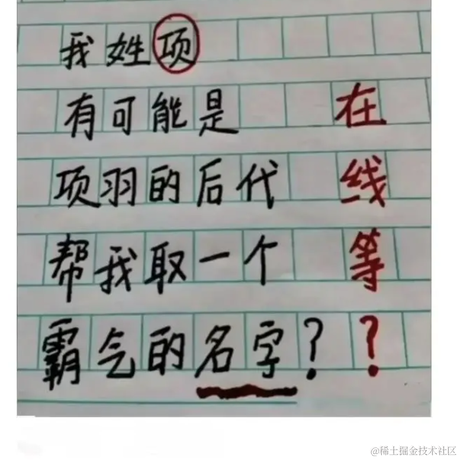 我姓项
有可能是
项羽的后代
帮我取一个
霸气的名字？
在线等？
@稀土掘金技术社区